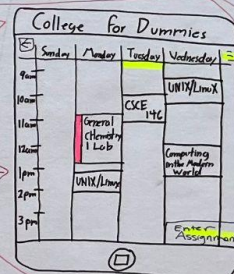 College for Dummies
Sunday Monday Tuesday Wednesday
9am
UNIX/LinuX
10am
CSCE
146
11am
General
CHemistry
1 Lab
12am
Computing
in the Modern
World
1pm
UNIX/Linux
2pm
3pm
Enter
Assignmen